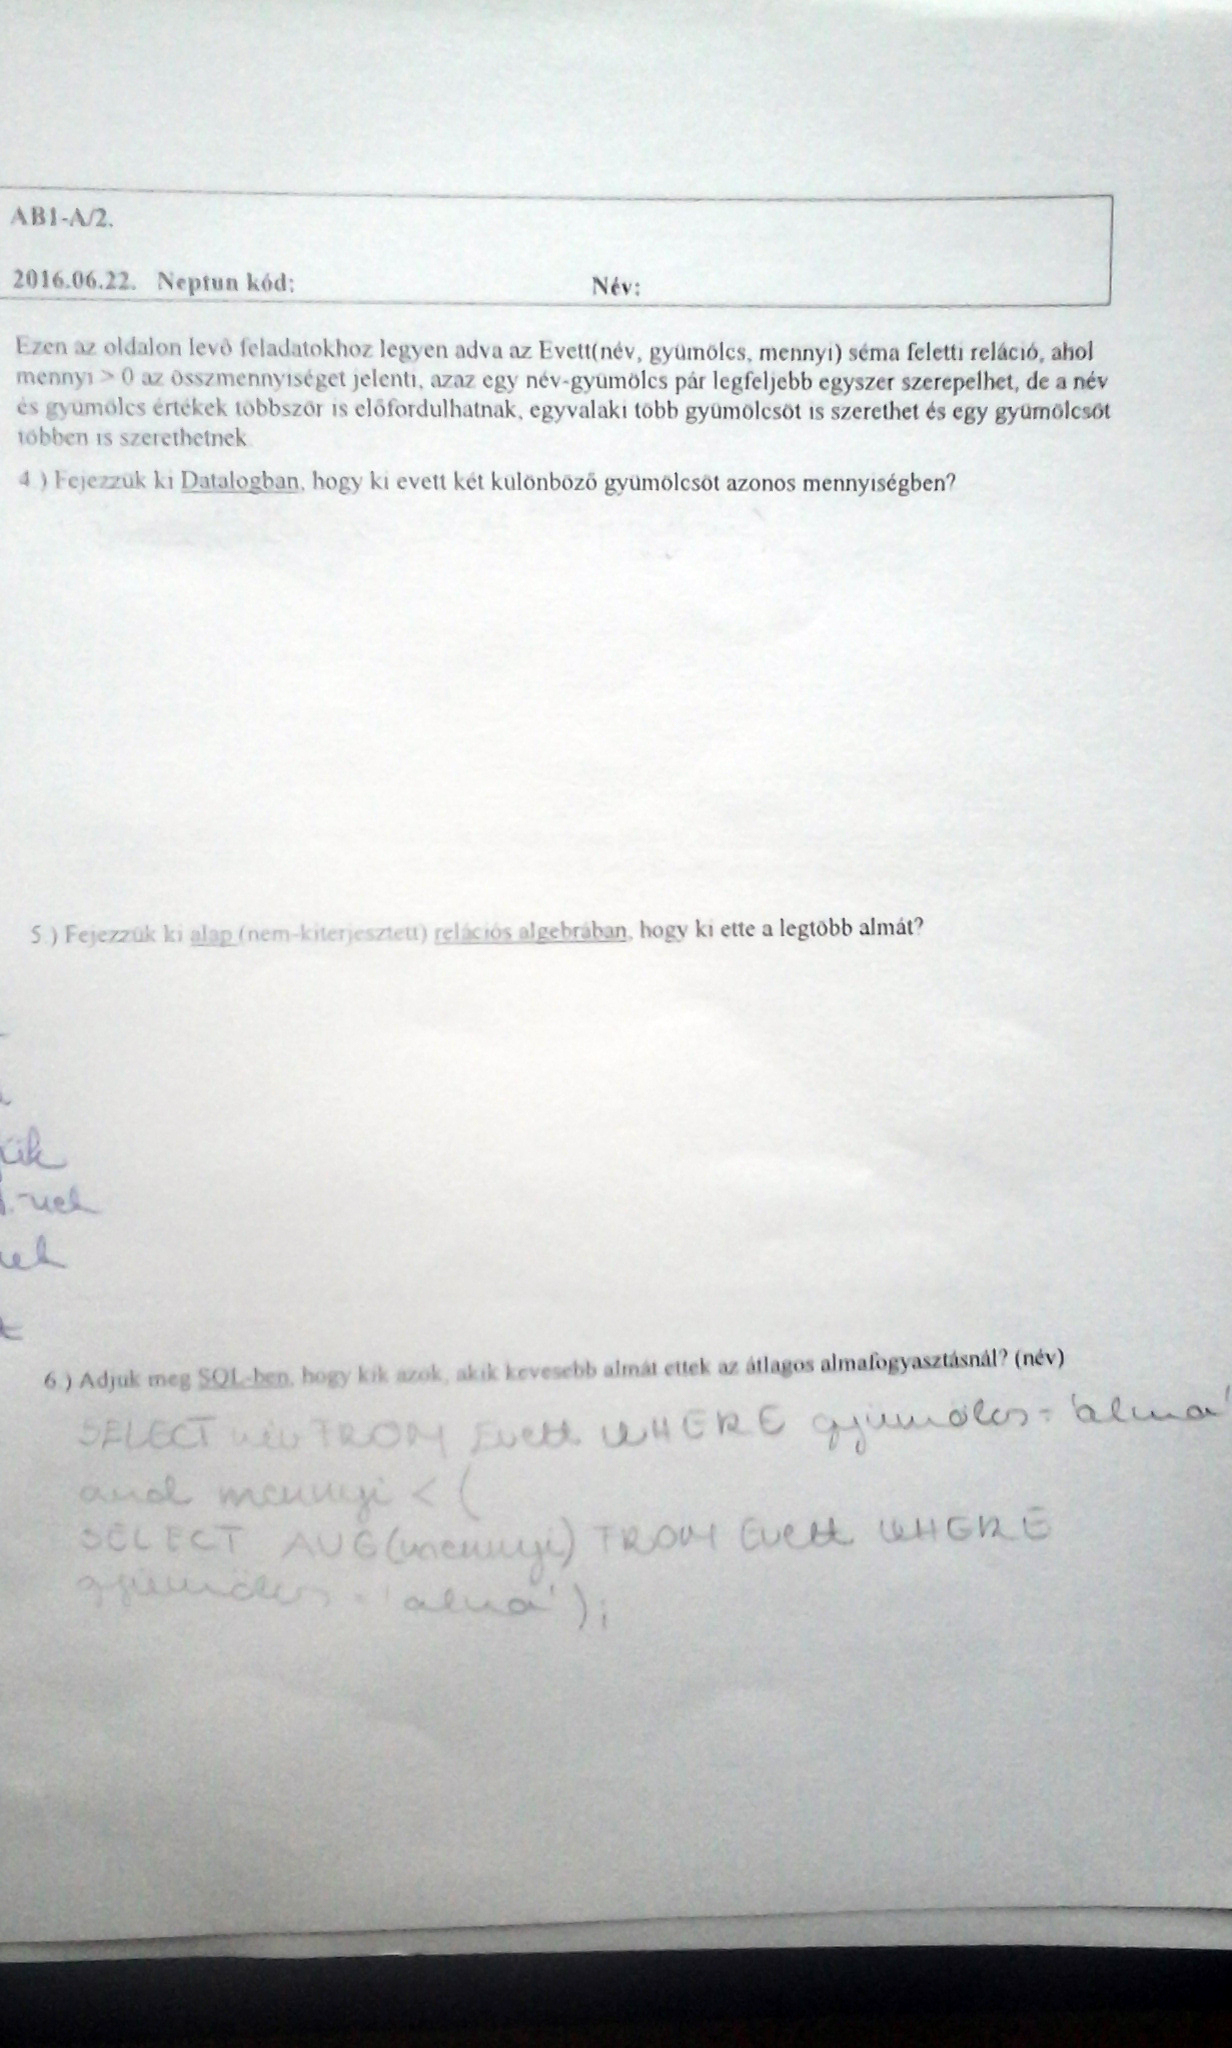 AB1-A/2.
2016.06.22. Neptun kód: Név:
Ezen az oldalon levő feladatokhoz legyen adva az Evett(név, gyümölcs, mennyi) séma feletti reláció, ahol
mennyi > 0 az összmennyiséget jelenti, azaz egy név-gyümölcs pár legfeljebb egyszer szerepelhet, de a név
és gyümölcs értékek többször is előfordulhatnak, egyvalaki több gyümölcsöt is szerethet és egy gyümölcsöt
többen is szerethetnek.
4.) Fejezzük ki Datalogban, hogy ki evett két különböző gyümölcsöt azonos mennyiségben?
5.) Fejezzük ki alap (nem-kiterjesztett) relációs algebrában, hogy ki ette a legtöbb almát?
nek
6.) Adjuk meg SQL-ben, hogy kik azok, akik kevesebb almát ettek az átlagos almafogyasztásnál? (név)
SELECT név FROM Evett WHERE gyümölcs = 'alma'
and mennyi < (
SELECT AVG(mennyi) FROM Evett WHERE
gyümölcs = 'alma');